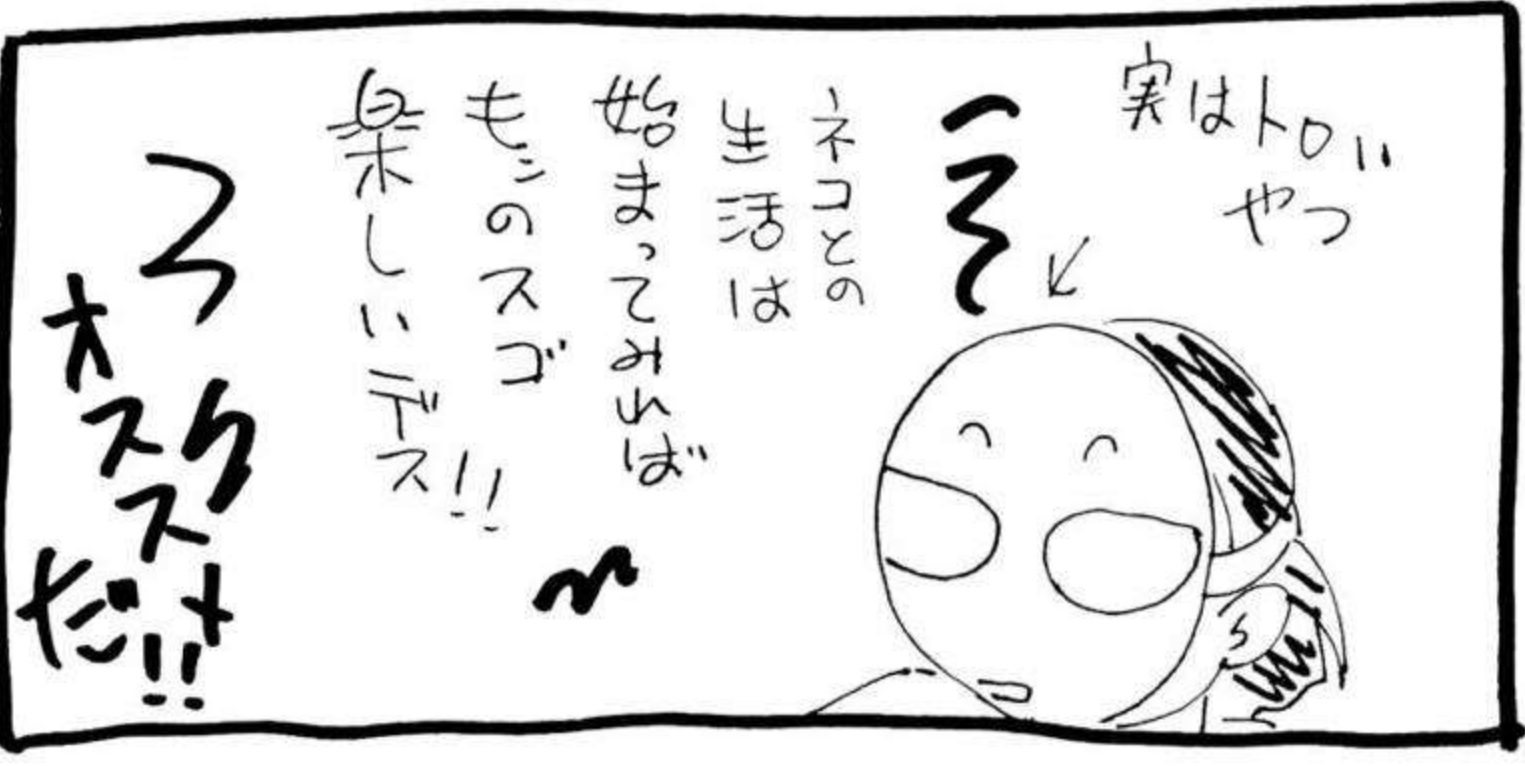 実はトロい
やつ
ネコとの
生活は
始まってみれば
もンのスゴ
楽しいデス!!
オススメだ!!